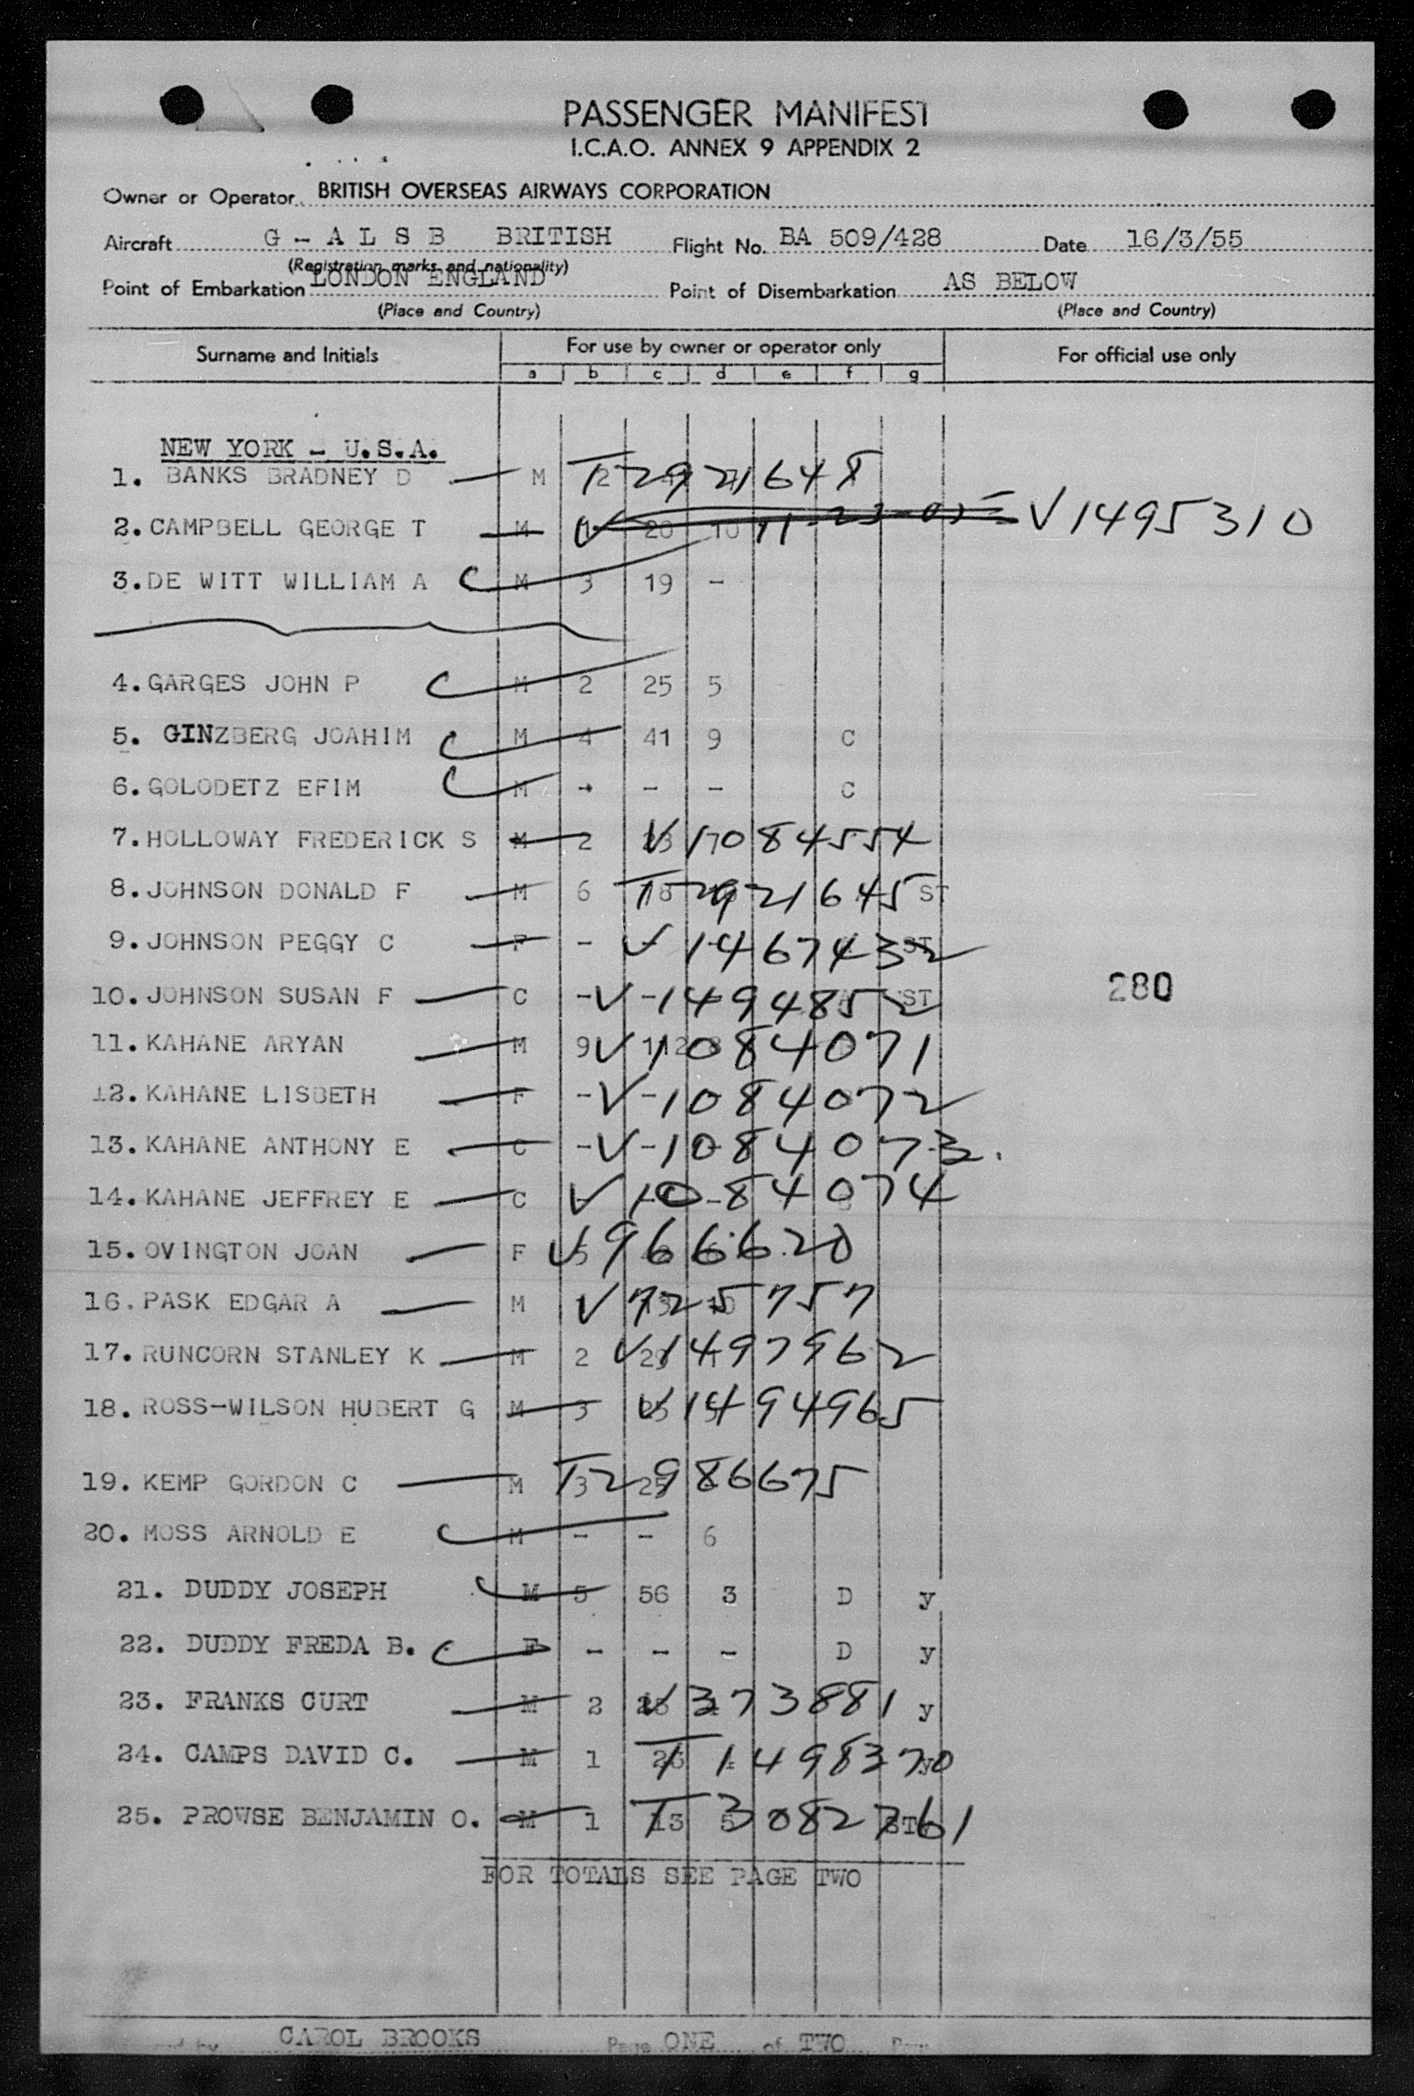 PASSENGER MANIFEST
I.C.A.O. ANNEX 9 APPENDIX 2
Owner or Operator BRITISH OVERSEAS AIRWAYS CORPORATION
Aircraft G - A L S B BRITISH Flight No. BA 509/428 Date 16/3/55
(Registration marks and nationality)
Point of Embarkation LONDON ENGLAND Point of Disembarkation AS BELOW
(Place and Country) (Place and Country)
Surname and Initials For use by owner or operator only For official use only
a b c d e f g
NEW YORK - U.S.A.
1. BANKS BRADNEY D M 2 T2921648
2. CAMPBELL GEORGE T M 20 10 V1495310
3. DE WITT WILLIAM A C M 3 19 -
4. GARGES JOHN P C M 2 25 5
5. GINZBERG JOAHIM C M 4 41 9 C
6. GOLODETZ EFIM C M - - - C
7. HOLLOWAY FREDERICK S M 2 V1084554
8. JOHNSON DONALD F M 6 18 T2921645 ST
9. JOHNSON PEGGY C F - V1467432 ST
10. JOHNSON SUSAN F C - V-1494852 ST
11. KAHANE ARYAN M 9 V1084071
12. KAHANE LISBETH F - V-1084072
13. KAHANE ANTHONY E C - V-1084073.
14. KAHANE JEFFREY E C V1084074
15. OVINGTON JOAN F V966620
16. PASK EDGAR A M V725757
17. RUNCORN STANLEY K M 2 V1497962
18. ROSS-WILSON HUBERT G M 3 V1494965
19. KEMP GORDON C M 3 25 T2986675
20. MOSS ARNOLD E C M - - 6
21. DUDDY JOSEPH M 5 56 3 D y
22. DUDDY FREDA B. C F - - - D y
23. FRANKS CURT M 2 V373881 y
24. CAMPS DAVID C. M 1 26 T1498370 y
25. PROWSE BENJAMIN O. M 1 13 5 T3082761 ST
280
FOR TOTALS SEE PAGE TWO
CAROL BROOKS Page ONE of TWO